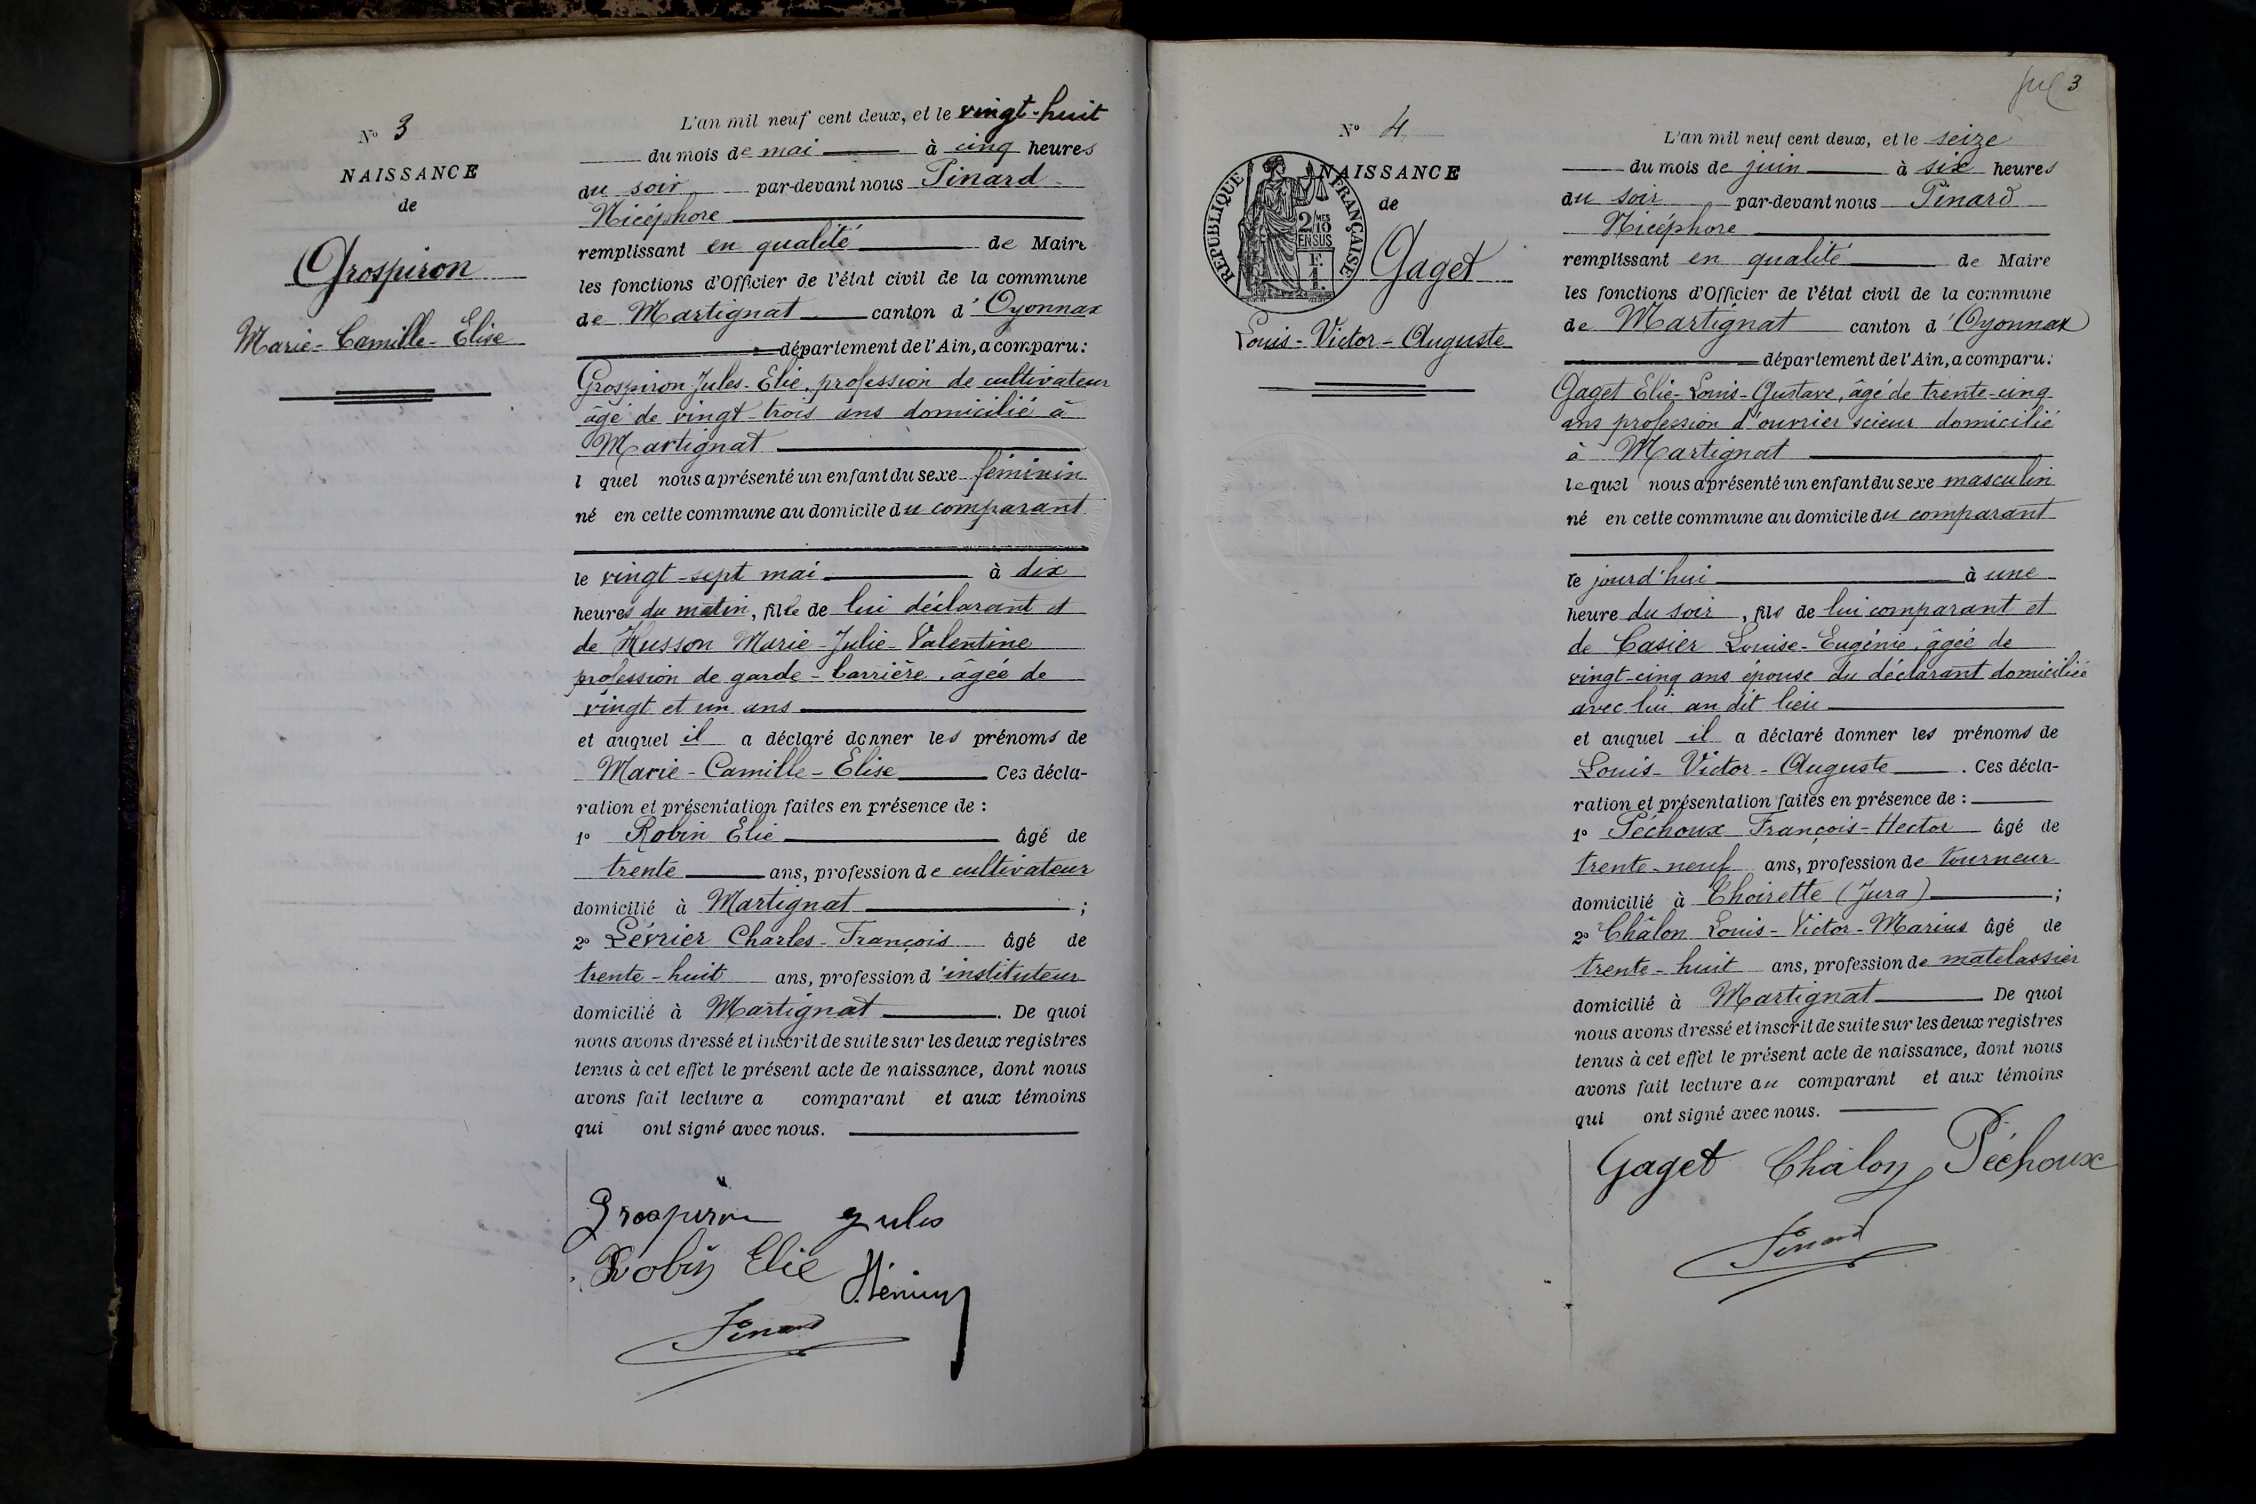 N° 3
NAISSANCE
de
Grospiron
Marie-Camille-Elise
L'an mil neuf cent deux, et le vingt-huit
du mois de mai à cinq heures
du soir par-devant nous Pinard
Nicéphore
remplissant en qualité de Maire
les fonctions d'Officier de l'état civil de la commune
de Martignat canton d'Oyonnax
département de l'Ain, a comparu:
Grospiron Jules-Elie, profession de cultivateur
âgé de vingt-trois ans domicilié à
Martignat
l quel nous a présenté un enfant du sexe féminin
né en cette commune au domicile du comparant
le vingt-sept mai à dix
heures du matin, fille de lui déclarant et
de Husson Marie-Julie-Valentine
profession de garde-barrière, âgée de
vingt et un ans
et auquel il a déclaré donner les prénoms de
Marie-Camille-Elise Ces décla-
ration et présentation faites en présence de :
1° Robin Elie âgé de
trente ans, profession de cultivateur
domicilié à Martignat ;
2° Févrièr Charles-François âgé de
trente-huit ans, profession d'instituteur
domicilié à Martignat. De quoi
nous avons dressé et inscrit de suite sur les deux registres
tenus à cet effet le présent acte de naissance, dont nous
avons fait lecture a comparant et aux témoins
qui ont signé avec nous.
Grospiron Jules
Robin Elie
Pinard
3
N° 4
NAISSANCE
de
RÉPUBLIQUE FRANÇAISE
2/10 MES
EN SUS
Gaget
Louis-Victor-Auguste
L'an mil neuf cent deux, et le seize
du mois de juin à six heures
du soir par-devant nous Pinard
Nicéphore
remplissant en qualité de Maire
les fonctions d'Officier de l'état civil de la commune
de Martignat canton d'Oyonnax
département de l'Ain, a comparu:
Gaget Elie-Louis-Gustave, âgé de trente-cinq
ans profession d'ouvrier scieur domicilié
à Martignat
lequel nous a présenté un enfant du sexe masculin
né en cette commune au domicile du comparant
le jourd'hui à une
heure du soir, fils de lui comparant et
de Casier Louise-Eugénie, âgée de
vingt-cinq ans épouse du déclarant domiciliée
avec lui au dit lieu
et auquel il a déclaré donner les prénoms de
Louis-Victor-Auguste. Ces décla-
ration et présentation faites en présence de :
1° Péchoux François-Hector âgé de
trente-neuf ans, profession de tourneur
domicilié à Thoirette (Jura) ;
2° Châlon Louis-Victor-Marius âgé de
trente-huit ans, profession de matelassier
domicilié à Martignat De quoi
nous avons dressé et inscrit de suite sur les deux registres
tenus à cet effet le présent acte de naissance, dont nous
avons fait lecture au comparant et aux témoins
qui ont signé avec nous.
Gaget Châlon Péchoux
Pinard